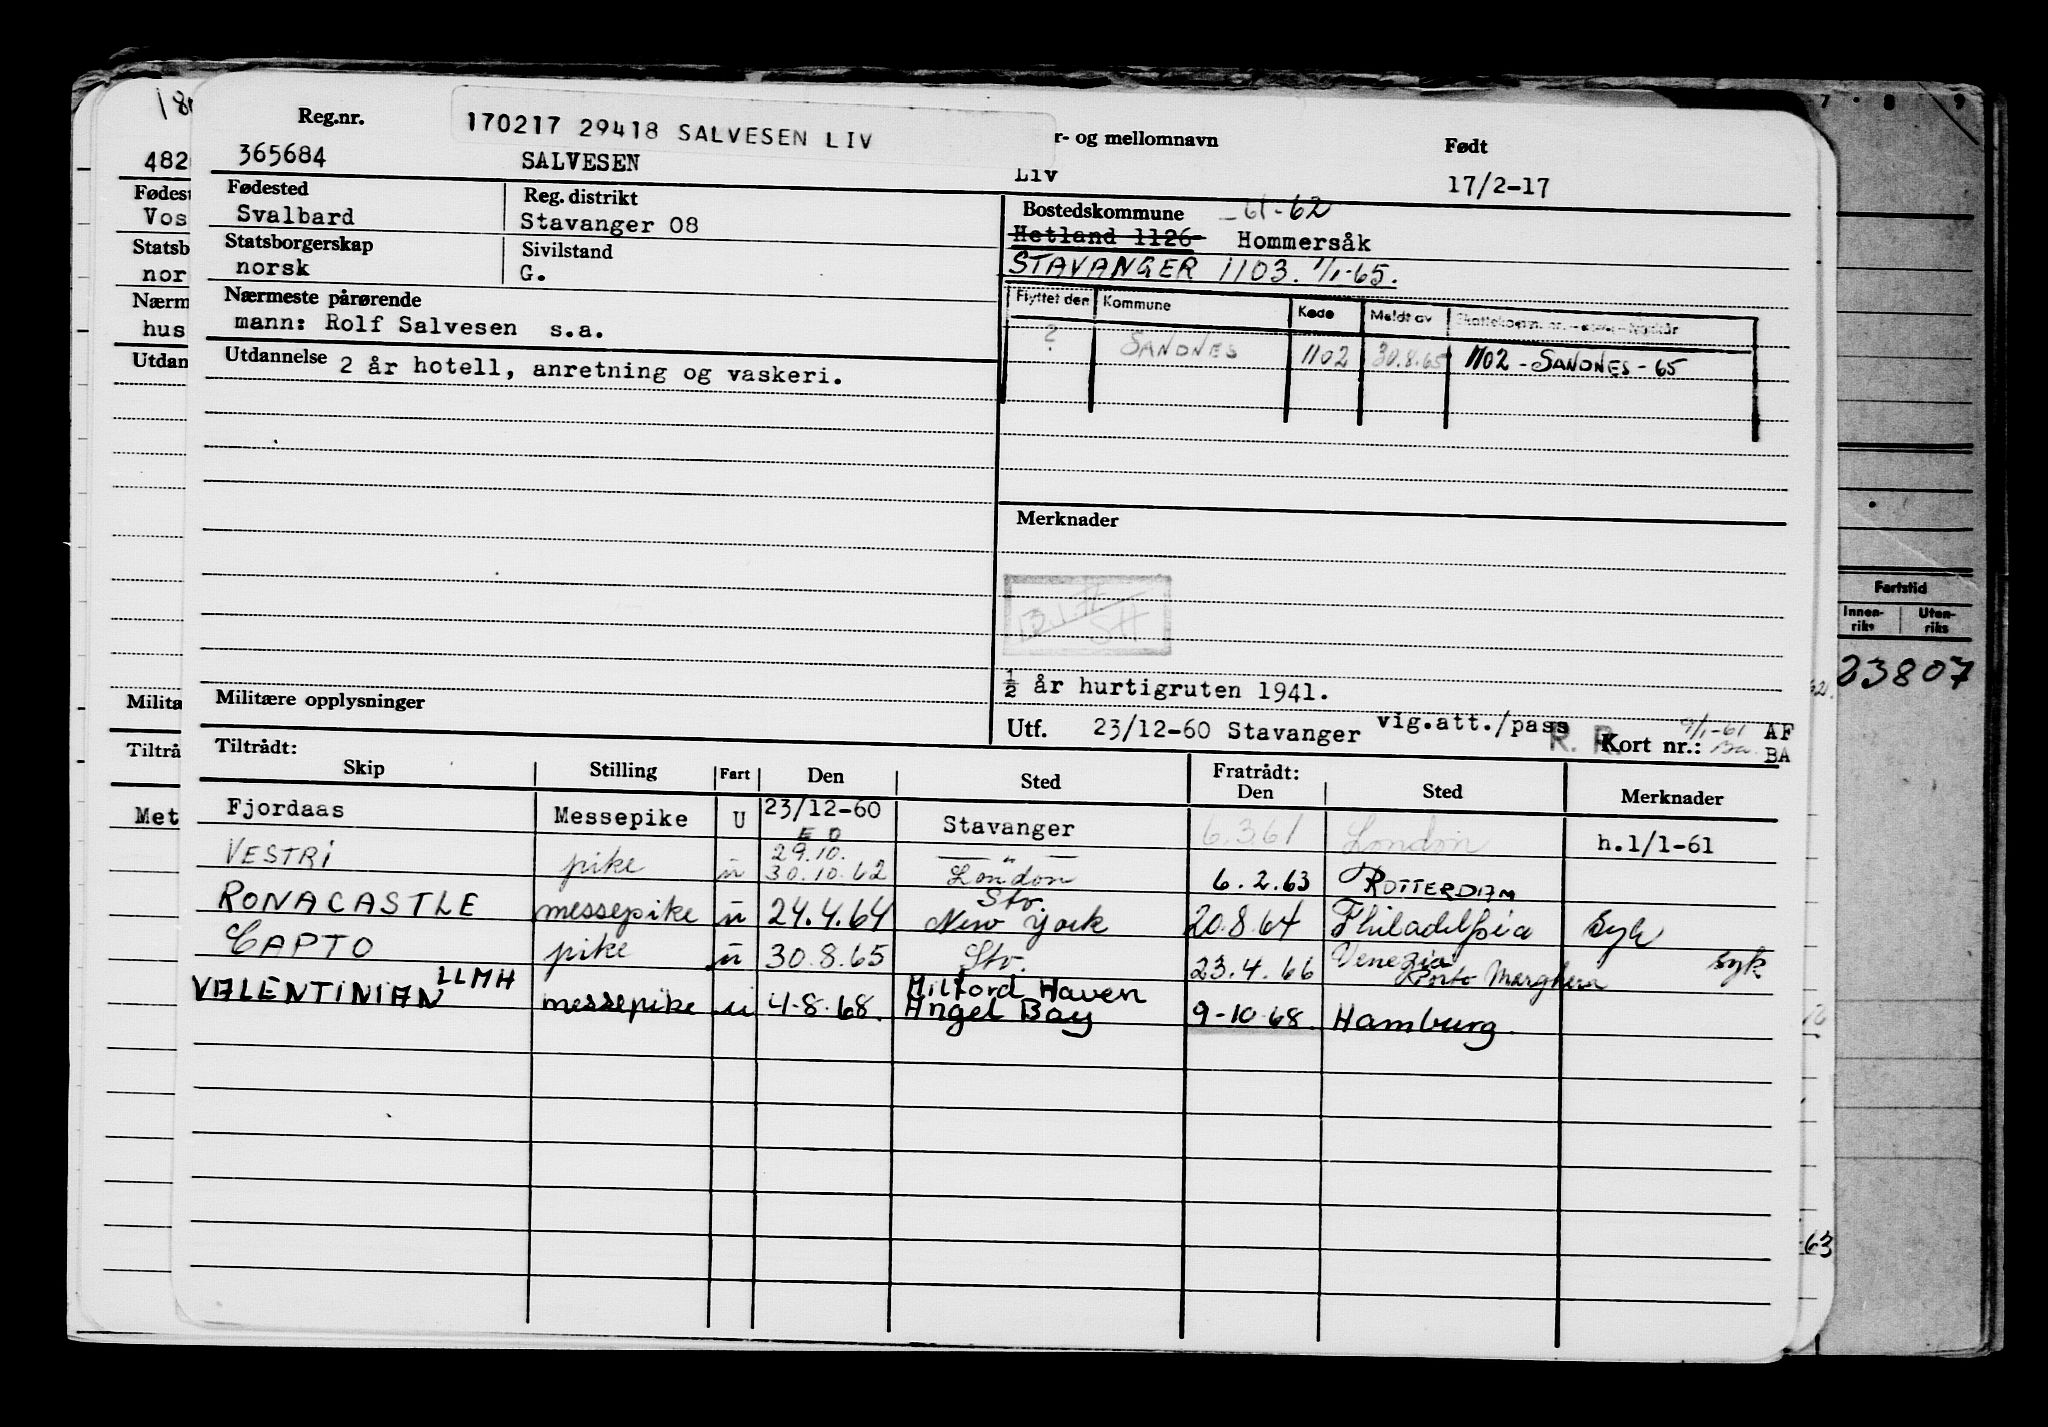 170217 29418 SALVESEN LIV
Reg.nr. r- og mellomnavn Født
365684 SALVESEN LIV 17/2-17
Fødested Reg. distrikt Bostedskommune 61-62
Svalbard Stavanger 08 Hetland 1126 Hommersåk
Statsborgerskap Sivilstand STAVANGER 1103. 1/1-65.
norsk G.
Nærmeste pårørende Flyttet den Kommune Kode Meldt av
mann: Rolf Salvesen s.a. ? SANDNES 1102 30.8.65 1102 - SANDNES - 65
Utdannelse 2 år hotell, anretning og vaskeri.
Merknader
½ år hurtigruten 1941.
Militære opplysninger
Utf. 23/12-60 Stavanger vig.att./pass R. R. Kort nr.: 9/1-61 AF
BA
Tiltrådt: Fratrådt:
Skip Stilling Fart Den Sted Den Sted Merknader
Fjordaas Messepike U 23/12-60 Stavanger 6.3.61 London h.1/1-61
E O
29.10.
VESTRI pike u 30.10.62 London 6.2.63 ROTTERDAM
Stv.
RONACASTLE messepike u 24.4.64 New York 20.8.64 Philadelphia Syk
CAPTO pike u 30.8.65 Stv. 23.4.66 Venezia Porto Marghera syk
LLMH Milford Haven
VALENTINIAN messepike u 4-8-68. Angel Bay 9-10-68. Hamburg.
182
Fødest
Vos
Statsb
nor
Nærm
hus
Utdan
Milita
Tiltrå
Met
7 8 9
Fartstid
Innen-
riks
Uten-
riks
23807
-63